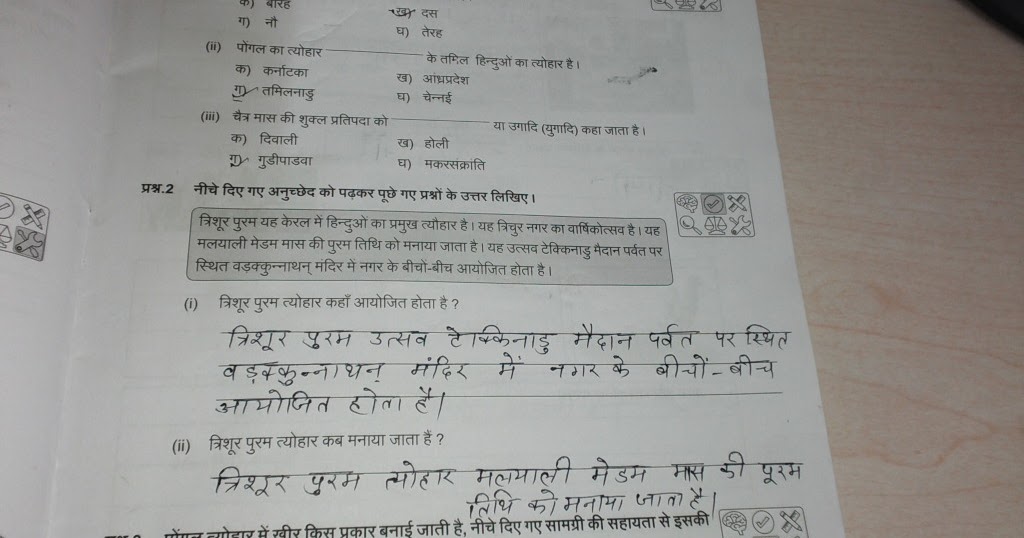 क) बारह ख) दस
ग) नौ घ) तेरह
(ii) पोंगल का त्योहार ____________ के तमिल हिन्दुओं का त्योहार है।
क) कर्नाटका ख) आंध्रप्रदेश
ग) तमिलनाडु घ) चेन्नई
(iii) चैत्र मास की शुक्ल प्रतिपदा को ____________ या उगादि (युगादि) कहा जाता है।
क) दिवाली ख) होली
ग) गुडीपाडवा घ) मकरसंक्रांति
प्रश्न.2 नीचे दिए गए अनुच्छेद को पढ़कर पूछे गए प्रश्नों के उत्तर लिखिए।
त्रिशूर पुरम यह केरल में हिन्दुओं का प्रमुख त्यौहार है। यह त्रिचुर नगर का वार्षिकोत्सव है। यह
मलयाली मेडम मास की पुरम तिथि को मनाया जाता है। यह उत्सव टेक्किनाडु मैदान पर्वत पर
स्थित वड़क्कुन्नाथन् मंदिर में नगर के बीचों-बीच आयोजित होता है।
(i) त्रिशूर पुरम त्योहार कहाँ आयोजित होता है ?
त्रिशूर पुरम उत्सव टेक्किनाडु मैदान पर्वत पर स्थित
वड़क्कुन्नाथन् मंदिर में नगर के बीचों-बीच
आयोजित होता है।
(ii) त्रिशूर पुरम त्योहार कब मनाया जाता है ?
त्रिशूर पुरम त्योहार मलयाली मेडम मास की पूरम
तिथि को मनाया जाता है।
पोंगल त्योहार में खीर किस प्रकार बनाई जाती है, नीचे दिए गए सामग्री की सहायता से इसकी